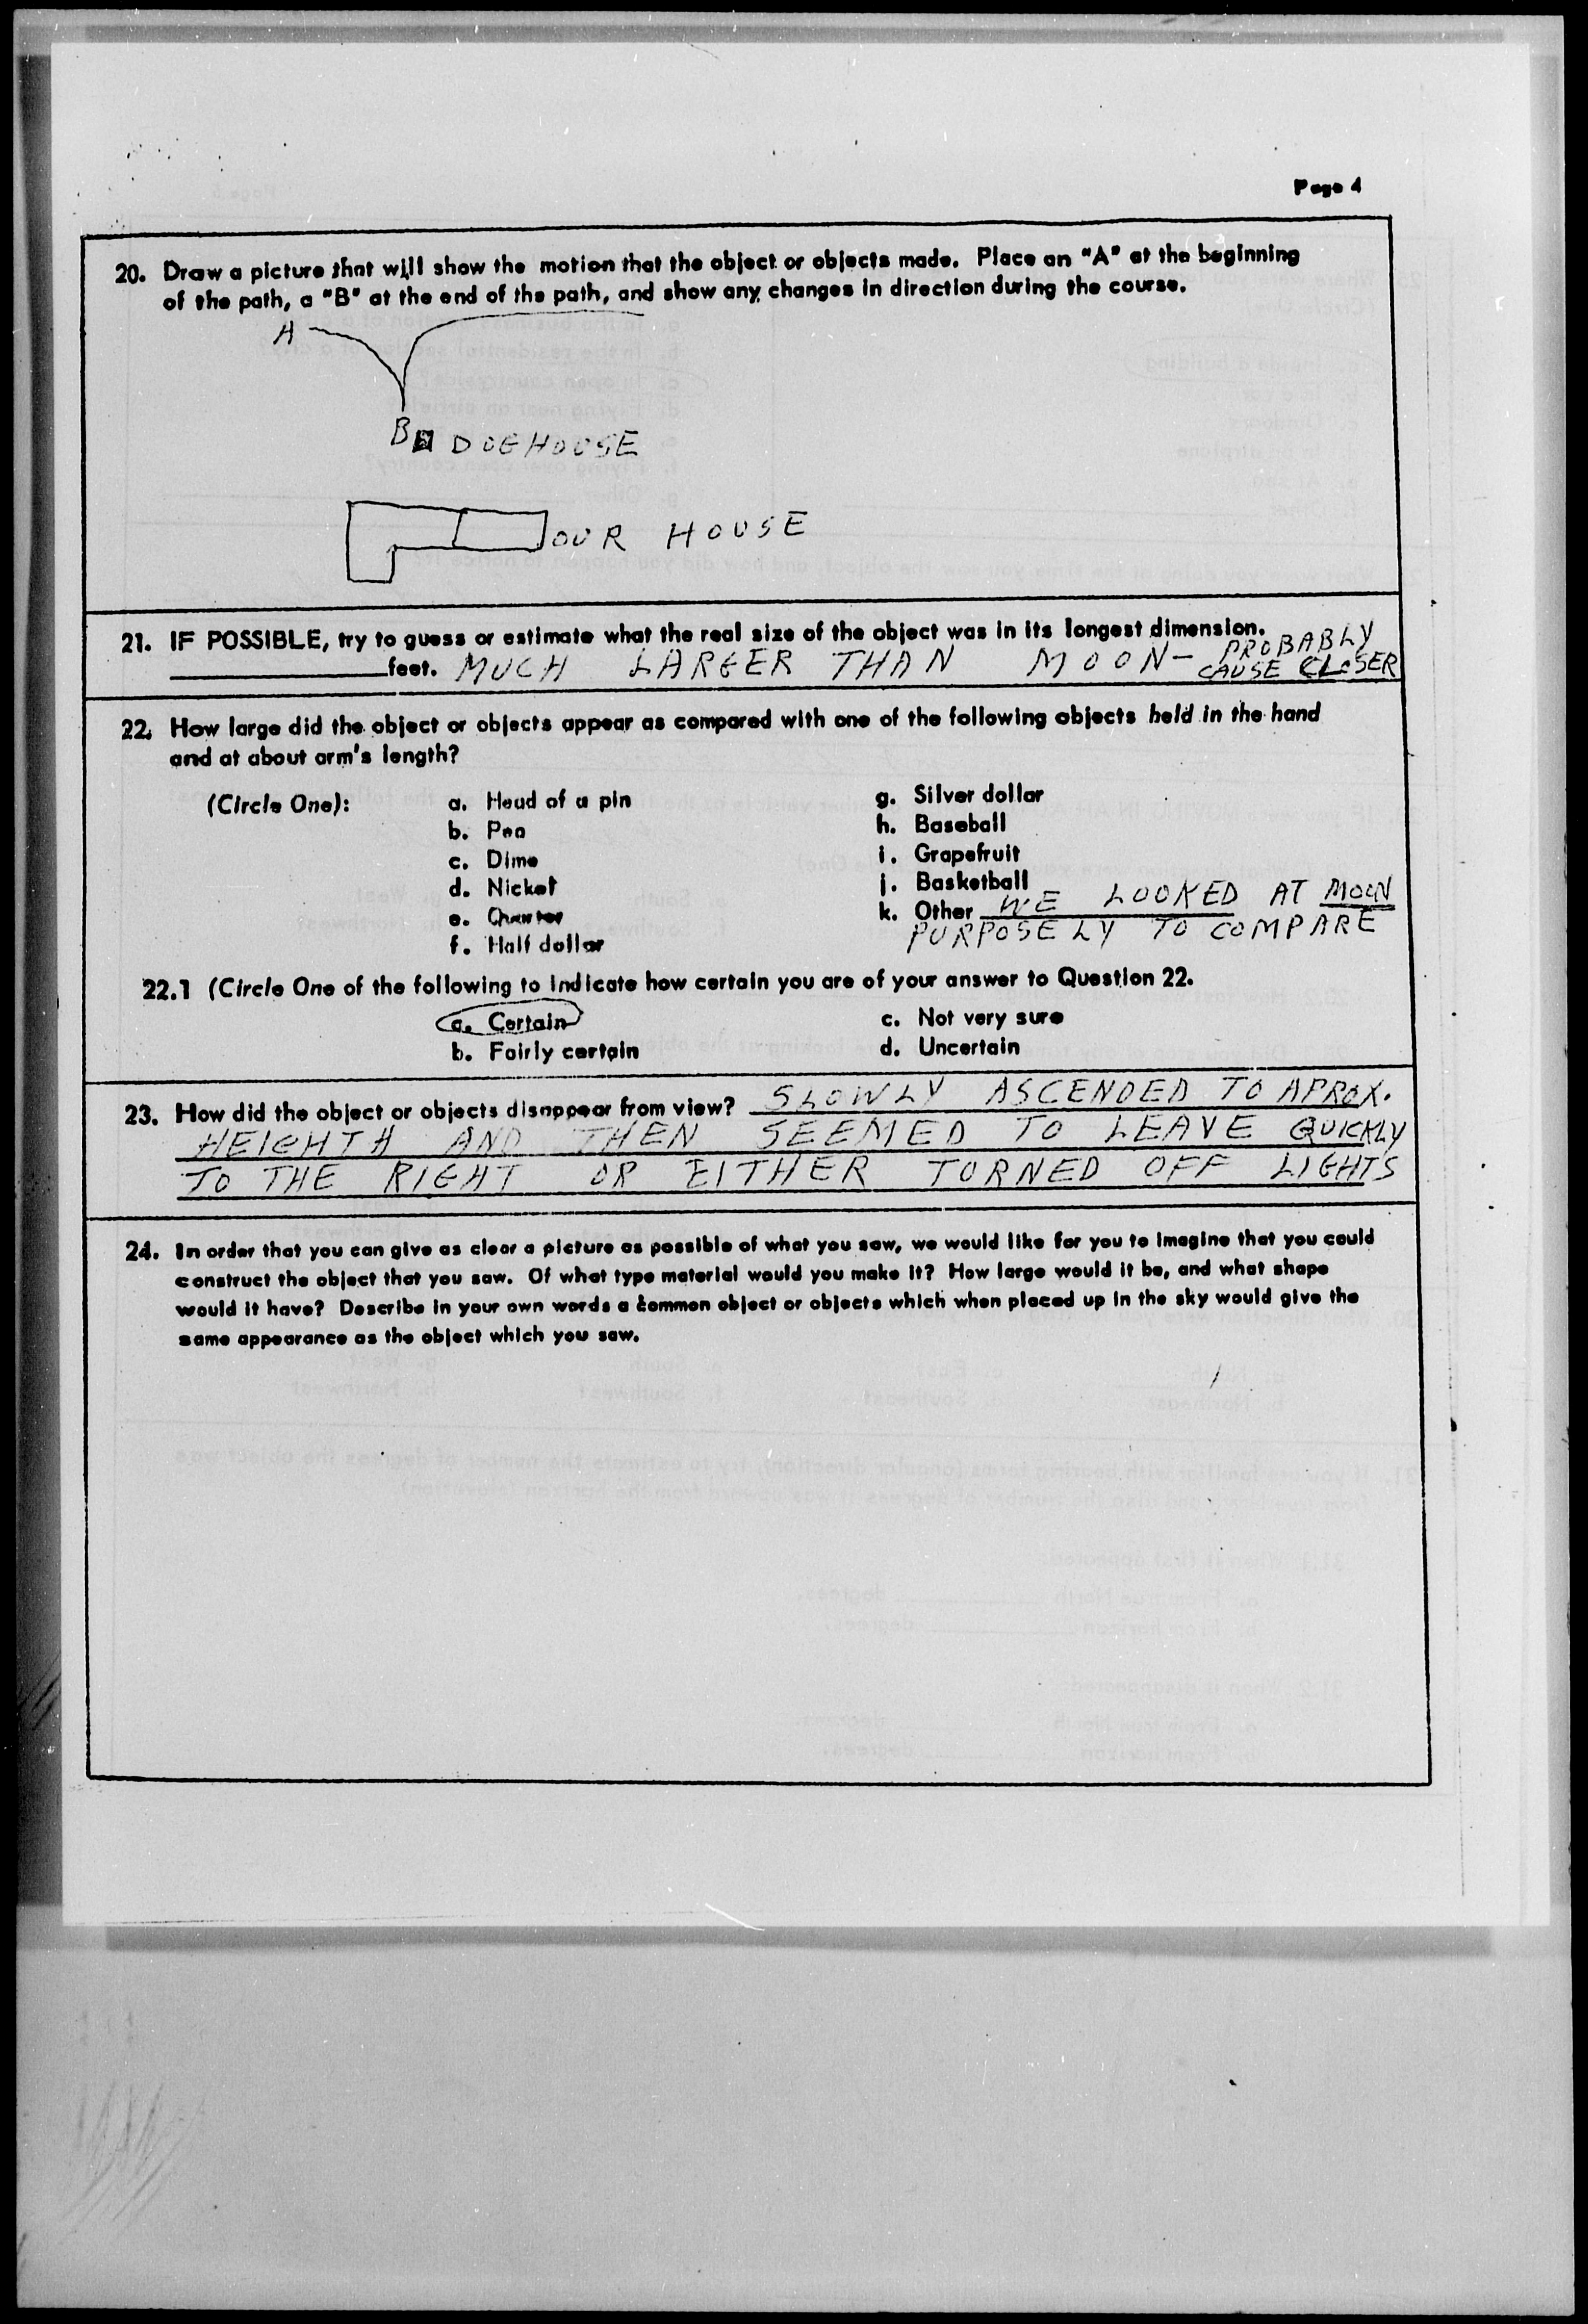 Page 4
20. Draw a picture that will show the motion that the object or objects made. Place an "A" at the beginning
of the path, a "B" at the end of the path, and show any changes in direction during the course.
A
B DOGHOUSE
OUR HOUSE
21. IF POSSIBLE, try to guess or estimate what the real size of the object was in its longest dimension.
feet. MUCH LARGER THAN MOON- PROBABLY
CAUSE CLOSER
22. How large did the object or objects appear as compared with one of the following objects held in the hand
and at about arm's length?
(Circle One): a. Head of a pin g. Silver dollar
b. Pea h. Baseball
c. Dime i. Grapefruit
d. Nickel j. Basketball
e. Quarter k. Other WE LOOKED AT MOON
f. Half dollar PURPOSELY TO COMPARE
22.1 (Circle One of the following to indicate how certain you are of your answer to Question 22.
a. Certain c. Not very sure
b. Fairly certain d. Uncertain
23. How did the object or objects disappear from view? SLOWLY ASCENDED TO APROX.
HEIGHTH AND THEN SEEMED TO LEAVE QUICKLY
TO THE RIGHT OR EITHER TURNED OFF LIGHTS
24. In order that you can give as clear a picture as possible of what you saw, we would like for you to imagine that you could
construct the object that you saw. Of what type material would you make it? How large would it be, and what shape
would it have? Describe in your own words a common object or objects which when placed up in the sky would give the
same appearance as the object which you saw.